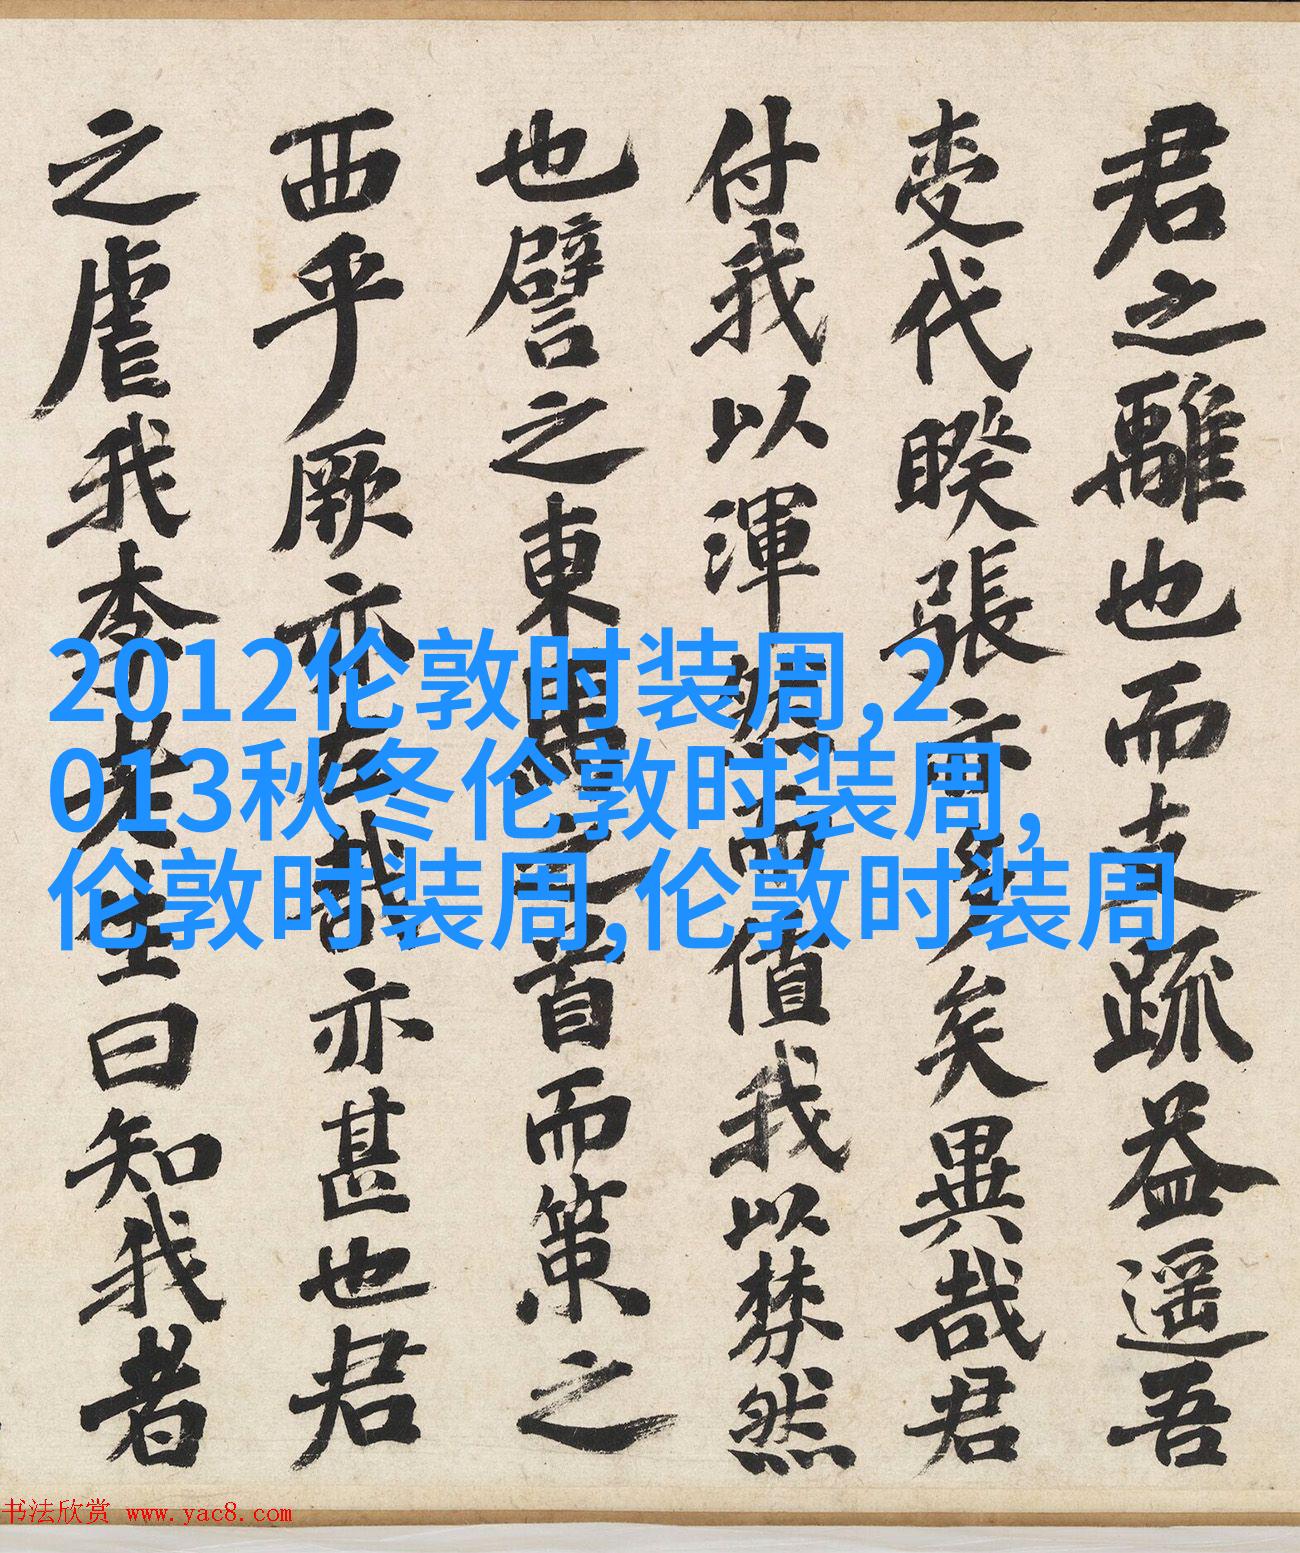 君之離也而支疏益遥吾
变代睽張亦多矣異哉君
付我以渾 而值我以棼然
也譬之東 之首而策之
西乎厥亦左哉亦甚也君
之虐我李老生曰知我者
2012伦敦时装周,2
013秋冬伦敦时装周,
伦敦时装周,伦敦时装周
书法欣赏 www.yac8.com